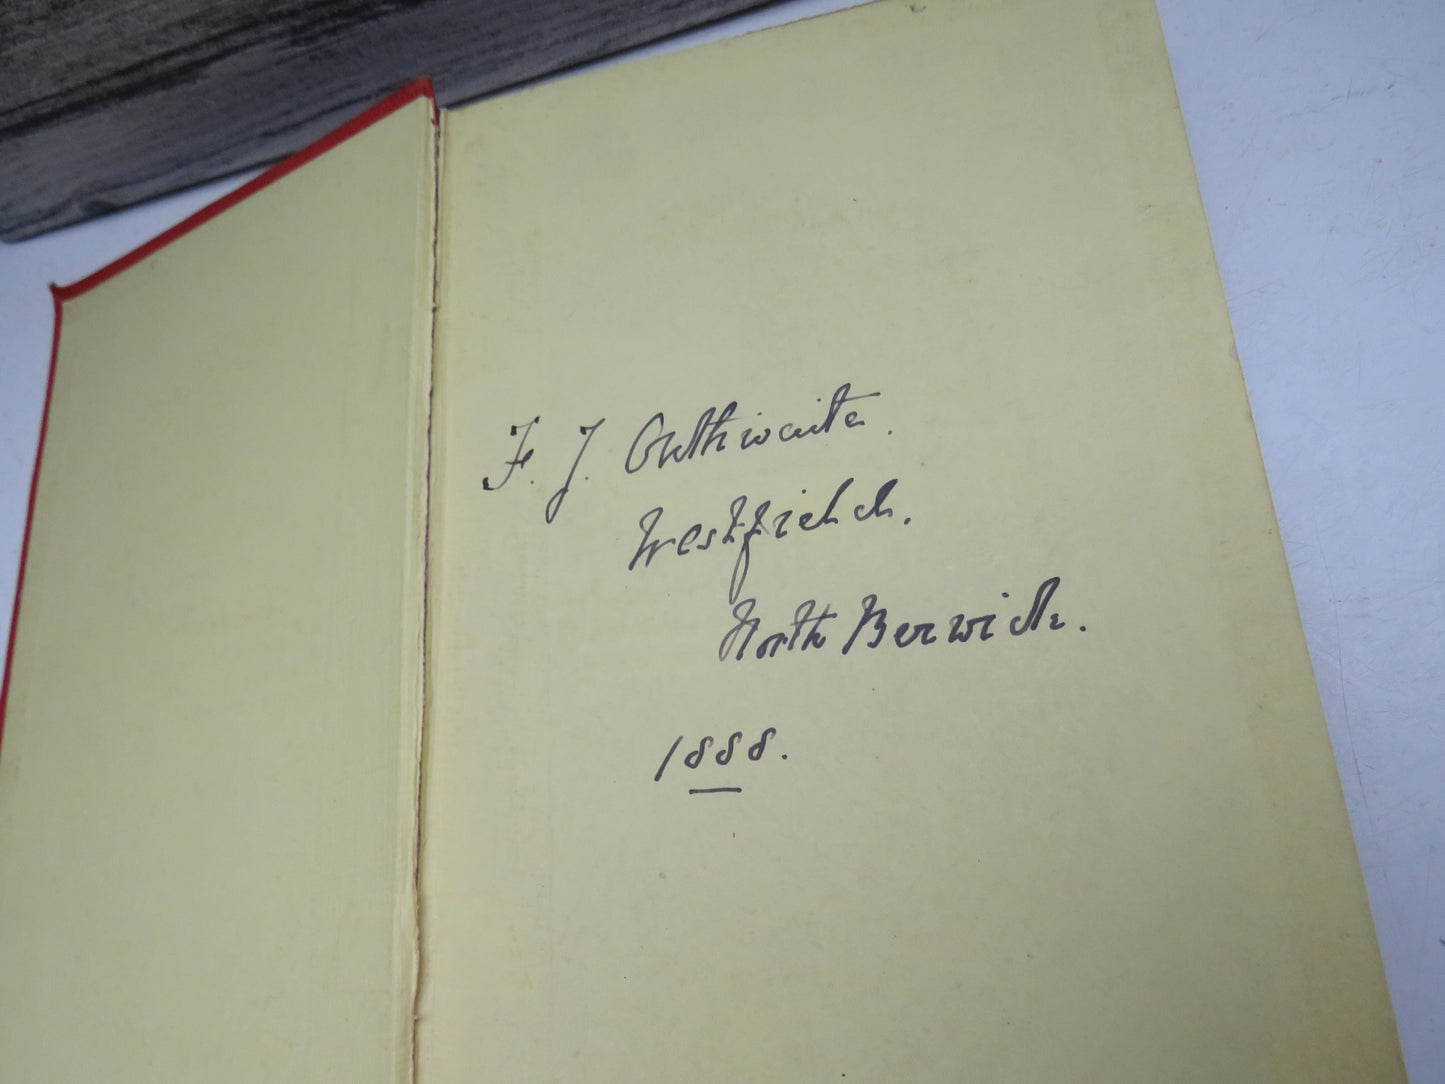 F. J. Outhwaite.
Westfield.
North Berwick.
1888.